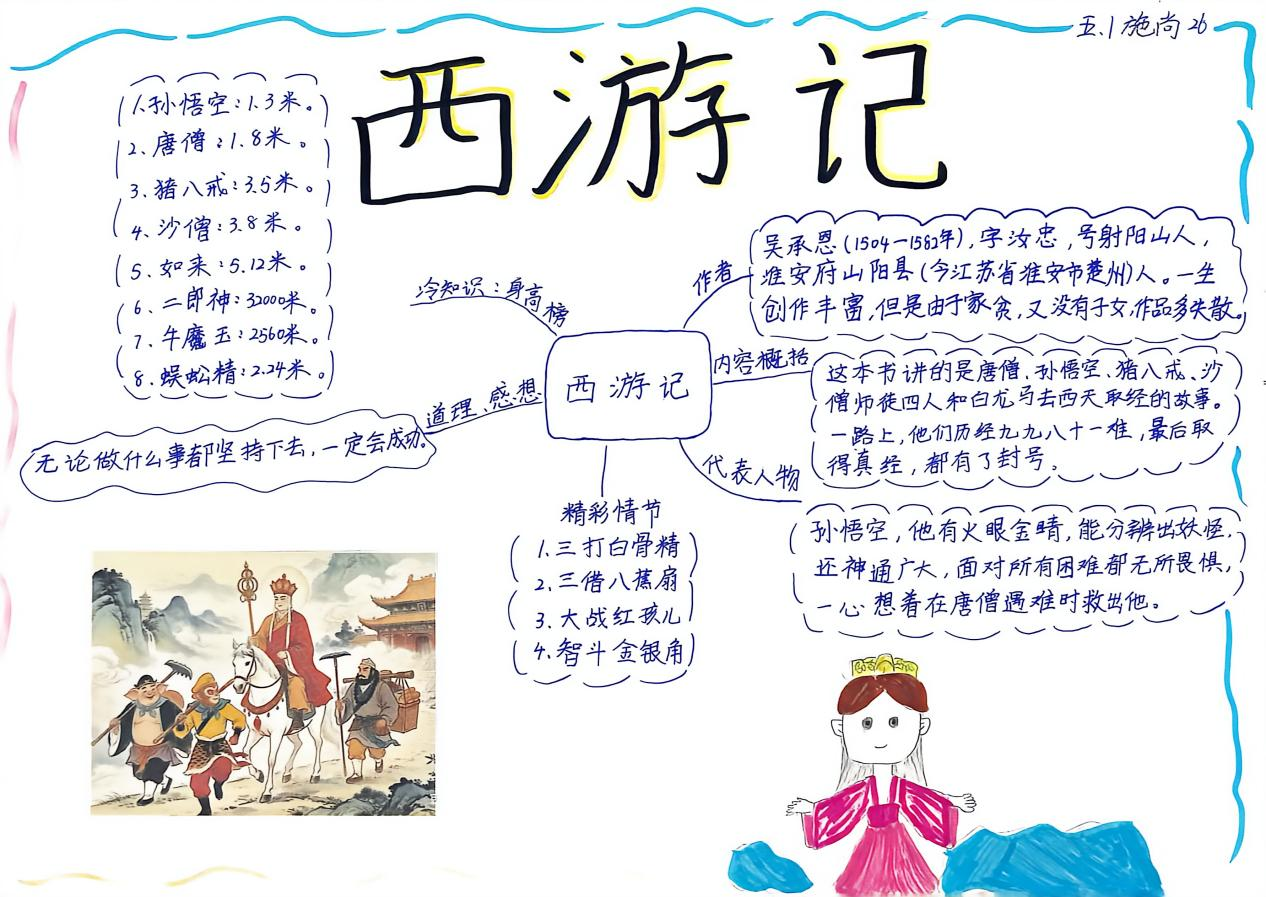 五.1 施尚 26
西游记
1.孙悟空:1.3米。
2.唐僧:1.8米。
3.猪八戒:3.5米。
4.沙僧:3.8米。
5.如来:5.12米。
6.二郎神:32000米。
7.牛魔王:2560米。
8.蜈蚣精:2.24米。
冷知识:身高榜
道理、感想
无论做什么事都坚持下去,一定会成功。
西游记
作者
吴承恩(1504—1582年),字汝忠,号射阳山人,
淮安府山阳县(今江苏省淮安市楚州)人。一生
创作丰富,但是由于家贫,又没有子女,作品多失散。
内容概括
这本书讲的是唐僧、孙悟空、猪八戒、沙
僧师徒四人和白龙马去西天取经的故事。
一路上,他们历经九九八十一难,最后取
得真经,都有了封号。
代表人物
孙悟空,他有火眼金睛,能分辨出妖怪,
还神通广大,面对所有困难都无所畏惧,
一心想着在唐僧遇难时救出他。
精彩情节
1.三打白骨精
2.三借八蕉扇
3.大战红孩儿
4.智斗金银角